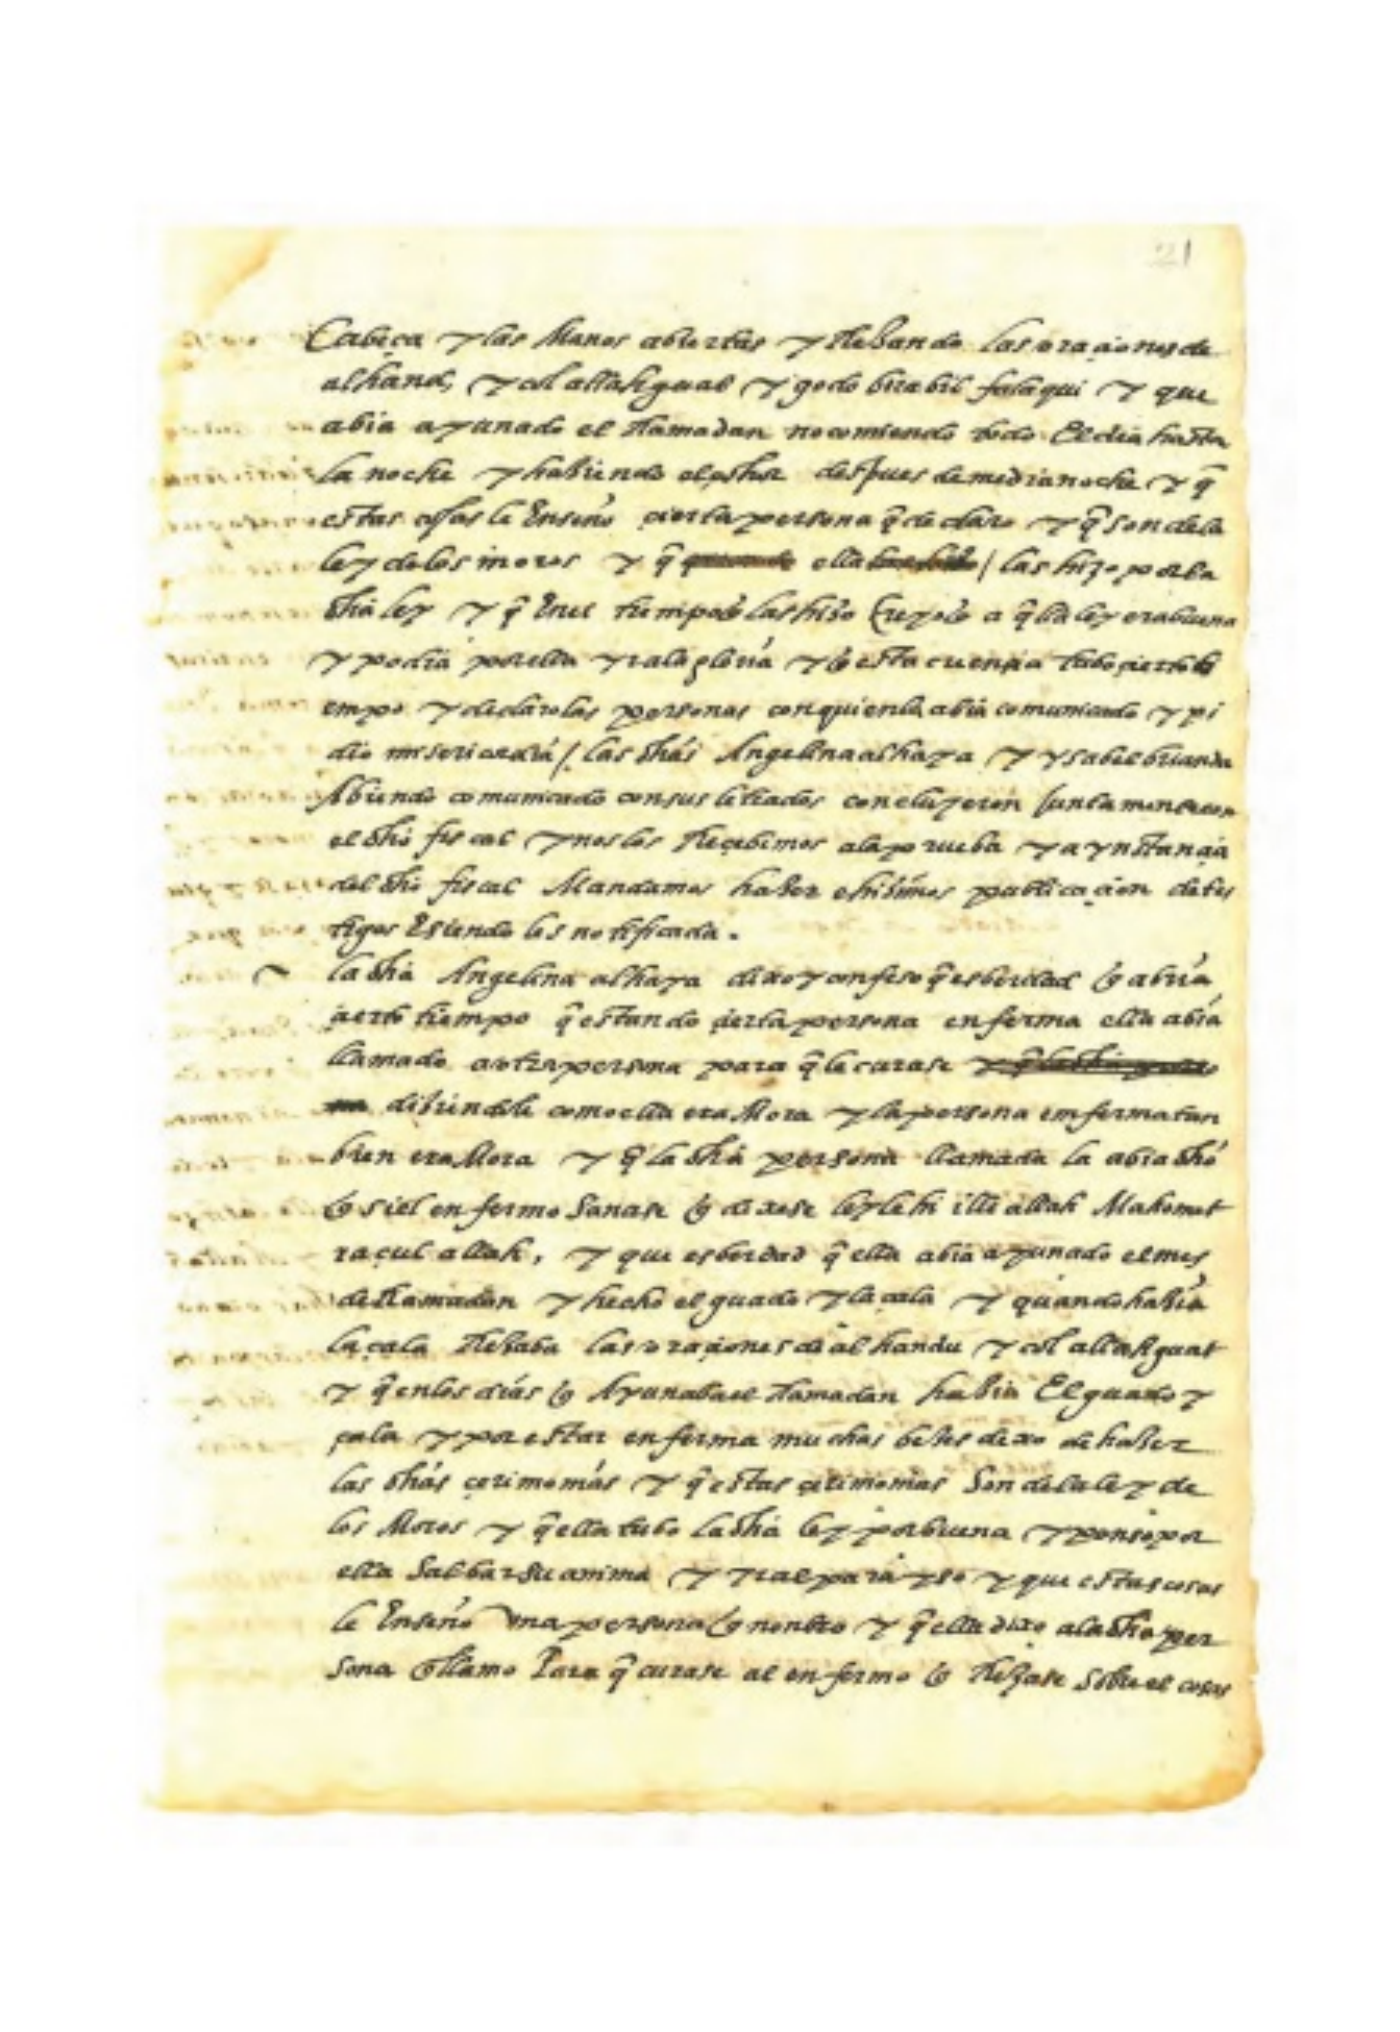 21
Cabeça y las Manos abiertas y Rezando las oraçiones de
alhand, y col allahguad y godo birabil falaqui y que
abia ayunado el Ramadan no comiendo todo El dia hasta
la noche y haziendo el despues de media noche y q̃
estas cosas le Enseño çierta persona q̃ declaro y q̃ son de la
ley de los moros y q̃ ella / las hizo por la
dhã ley y q̃ En el tiempo q̃ las hizo Creyo q̃ aq̃lla ley era buena
y podia por ella yr a la gloria y q̃ esta cuenta tubo çierto ti
empo y declaro las personas con quien la abia comunicado y pi
dio misericordia / las dhãs Angelina alhaya y ysabel brianda
Abiendo comunicado con sus letrados concluyeron Juntamente con
el dhõ fiscal y nos los Reçebimos a la prueba y a ynstançia
del dhõ fiscal Mandamos hazer e hizimos publicaçion de tes
tigos Esiendoles notificada.
~ la dhã Angelina alhaya dixo y confeso q̃ es berdad q̃ abria
çierto tiempo q̃ estando çierta persona enferma ella abia
llamado a otra persona para q̃ le curase y q̃ la dhã
diziendole como ella era Mora y la persona emferma tan
bien era Mora y q̃ la dhã persona llamada la abia dhõ
q̃ si el enfermo Sanase q̃ dixese leyle hi ille allah Mahomet
raçul allah, y que es berdad q̃ ella abia ayunado el mes
de Ramadan y hecho el guado y la çala y quando hazia
la çala Rezaba las oraçiones de alhandu y col allahguat
y q̃ en los dias q̃ Ayunaba el Ramadan hazia El guado y
çala y por estar enferma muchas bezes dexo de hazer
las dhãs çerimonias y q̃ estas çerimonias Son de la ley de
los Moros y q̃ ella tubo la dhã ley por buena y penso por
ella Salbar su anima y yr al parayso y que estas cosas
le Enseño Vna persona q̃ nonbro y q̃ ella dixo a la dhã per
sona q̃ llamo Para q̃ curase al enfermo q̃ Rezase Sobre el cosas